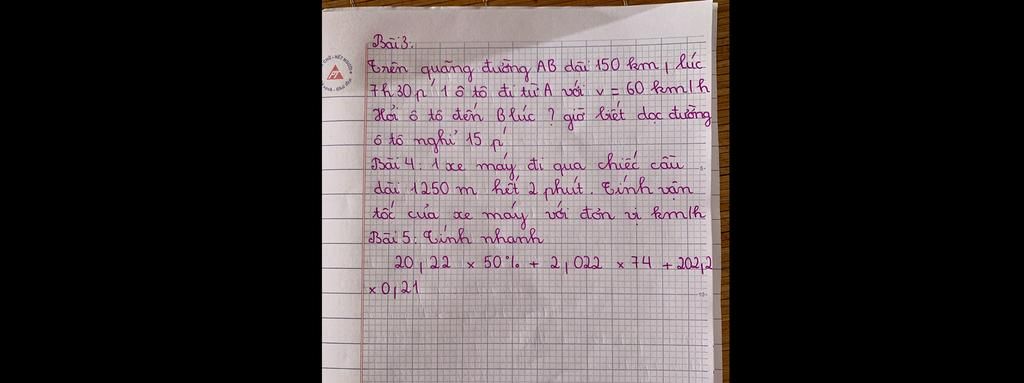 Bài 3:
Trên quãng đường AB dài 150 km, lúc
7h 30p' 1 ô tô đi từ A với v = 60 km/h
Hỏi ô tô đến B lúc ? giờ biết dọc đường
ô tô nghỉ 15 p'
Bài 4: 1 xe máy đi qua chiếc cầu
dài 1250 m hết 2 phút. Tính vận
tốc của xe máy với đơn vị km/h
Bài 5: Tính nhanh
20,22 x 50% + 2,022 x 74 + 202,2
x 0,21